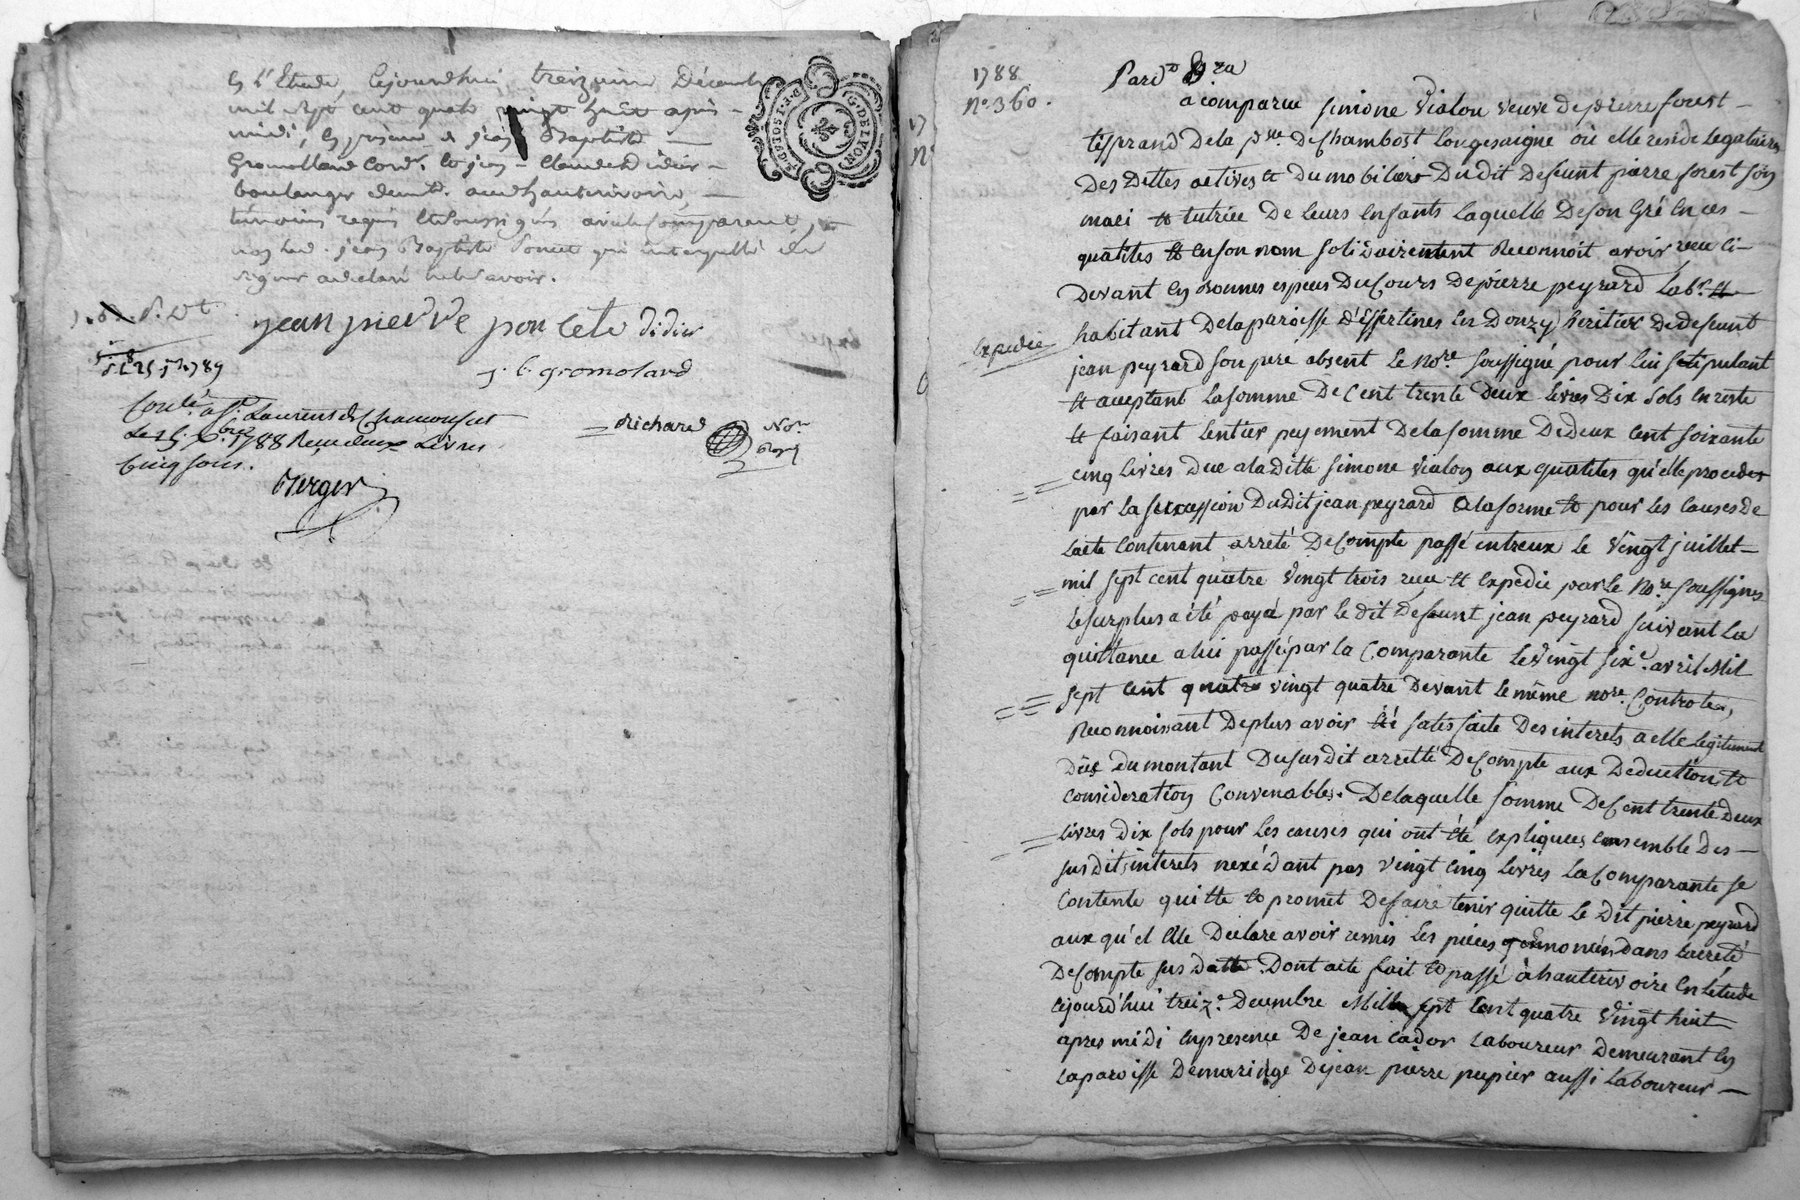 En l'Etude, Cejourdhui treizieme Décembre
mil sept cent quatre vingt huit après
midi, en presence de jean Baptiste
Gromolard Cord. & jean Claude Didier
boulanger demt. audhauterivoire,
témoins requis & soussignés avec le comparant,
non led. jean Baptiste Poncet qui interpellé de
signer a declaré ne le savoir.
G. DE LYON
jean pierre poncete didier
j. b. gromolard
1789
Conlé. à St. Laurent de Chamousset
Le 25. Xbre. 1788 Reçu deux Livres
Cinq sous.
Verger
Richard Nore
Royal
1788
No. 360.
Pard.
a comparue simone vialon veuve de pierre forest
tisserand de la psse. de Chambost Longesaigne où elle reside legataire
des dettes actives & du mobilier du dit defeunt pierre forest son
mari & tutrice de leurs Enfants laquelle de son gré en ces
qualites & en son nom solidairement Reconnoit avoir reeu ci
devant en bonnes espèces du Cours de pierre peyrard Labr. &
habitant de la paroisse d'Essertines en Donzy heritier de defeunt
Expediée
jean peyrard son pere absent le Nore. soussigné pour lui stipulant
& aceptant la somme de Cent trente deux Livres dix sols en reste
& faisant l'entier peyement de la somme de deux cent soixante
cinq livres due a la ditte simone vialon aux qualites qu'elle procedes
par la succession du dit jean peyrard a la forme & pour les Causes de
l'acte Contenant arreté de Compte passé entreux le vingt juillet
mil sept cent quatre vingt trois reeu & expedié par le Nore. soussigné
le surplus a été payé par le dit defeunt jean peyrard suivant la
quittance a lui passé par la Comparante le vingt sixe. avril Mil
sept cent quatre vingt quatre devant le même nore. Controlée,
Reconnoissant de plus avoir été satisfaite des interets a elle legitimement
dûs du montant du susdit arretté de Compte aux deductions &
consideration Convenables. De laquelle somme de Cent trente deux
livres dix sols pour les causes qui ont été expliquées ensemble des
susdits interets nexédant pas vingt cinq livres la Comparante se
Contente quitte & promet de faire tenir quitte le dit pierre peyrard
aux qu'el elle declare avoir remis les pieces enoncées dans larreté
de Compte sus datté. Dont acte fait & passé à hauterivoire en l'etude
cejourd'hui treize. decembre Mille sept Cent quatre vingt huit
apres midi en presence de jean Cador laboureur demeurant en
la paroisse de maringe de jean pierre pupier aussi laboureur